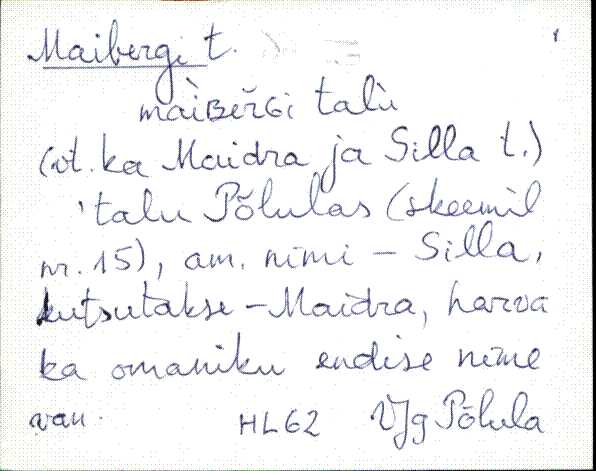 Maibergi t.
màiʙĕrɢi talù
(vt. ka Maidra ja Silla t.)
'talu Põlulas (skeemil
nr. 15), am. nimi – Silla,
kutsutakse – Maidra, harva
ka omaniku endise nime
HL62 VJg Põlula